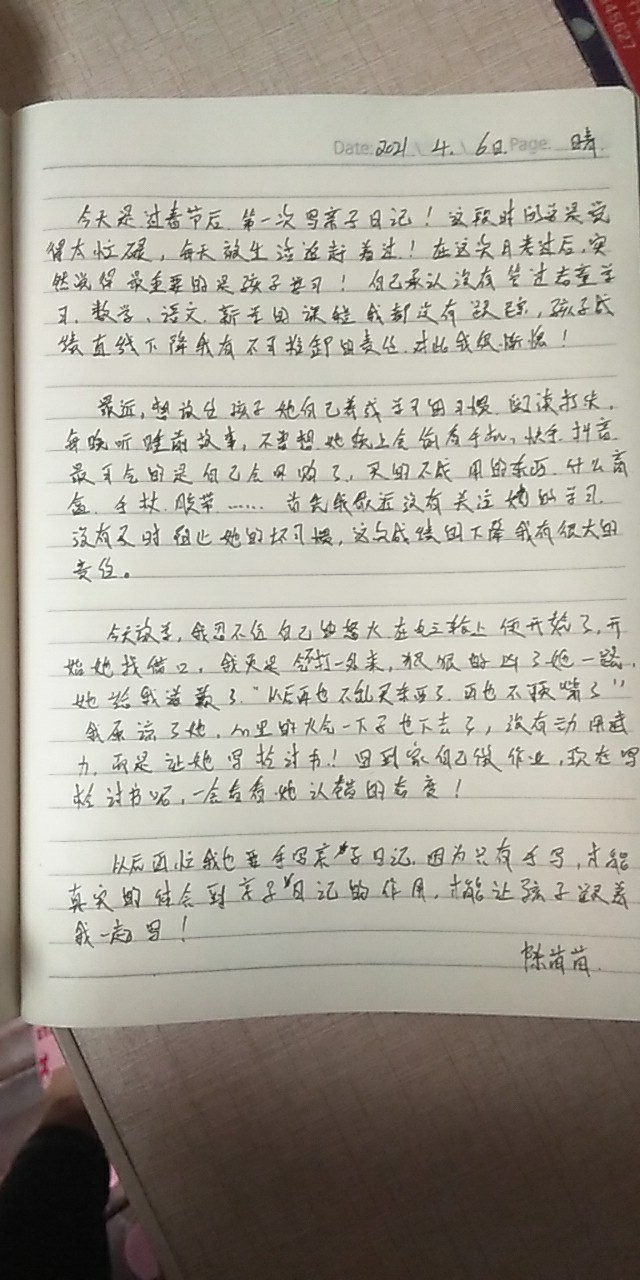 46627
Date: 2021 \ 4. \ 6日. Page: 晴.
今天是过春节后.第一次写亲子日记！这段时间总是觉
得太忙碌，每天被生活追赶着过！在这次月考过后，突
然觉得最重要的是孩子学习！自己承认没有管过右童学
习.数学、语文.新学的课程我都没有跟踪，孩子成
绩直线下降我有不可推卸的责任.对此我很惭愧！
最近，想放任孩子她自己养成学习的习惯.阅读打央.
每晚听睡前故事，不曾想她晚上会偷看手机、快手.抖音
最可气的是自己会网购了，买的不成用的东西.什么盲
盒.手杖.胶带……首先我最近没有关注她的学习.
没有及时阻止她的坏习惯，这次成绩的下降我有很大的
责任。
今天放学，我忍不住自己的怒火在电三轮上便开熬了，开
始她找借口，我更是气不打一处来，狠狠的凶了她一路，
她给我道歉了.“以后再也不乱买东西了.再也不顶嘴了”
我原谅了她，心里的火气一下子也下去了，没有动用武
力，而是让她写检讨书！回到家自己做作业，现在写
检讨书呢，一会看看她认错的态度！
以后再忙我也要手写亲子日记.因为只有手写，才能
真实的体会到亲子日记的作用，才能让孩子跟着
我一起写！
陈苗苗.